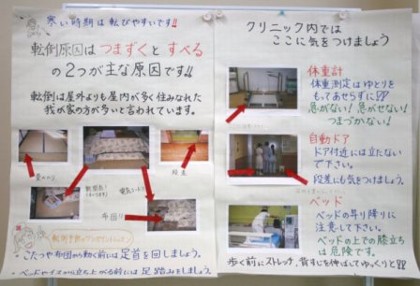 寒い時期は転びやすいです!!
転倒原因は つまずくと すべる
の2つが主な原因です!!
転倒は屋外よりも屋内が多く住みなれた
我が家の方が多いと言われています。
段差
こたつや布団から動く前には足首を回しましょう。
ベッドやイスから立ち上がる前には足踏みをしましょう。
クリニック内では
ここに気をつけましょう
体重計
体重測定はゆとりを
もってあせらずに!!
急がない! 急がせない!
つまづかない!
自動ドア
ドア付近には立たない
で下さい。
段差にも気をつけましょう。
ベッド
ベッドの昇り降りに
注意して下さい。
ベッドの上での膝立ち
は危険です。
歩く前にストレッチ、背すじを伸ばしてゆっくりと!!